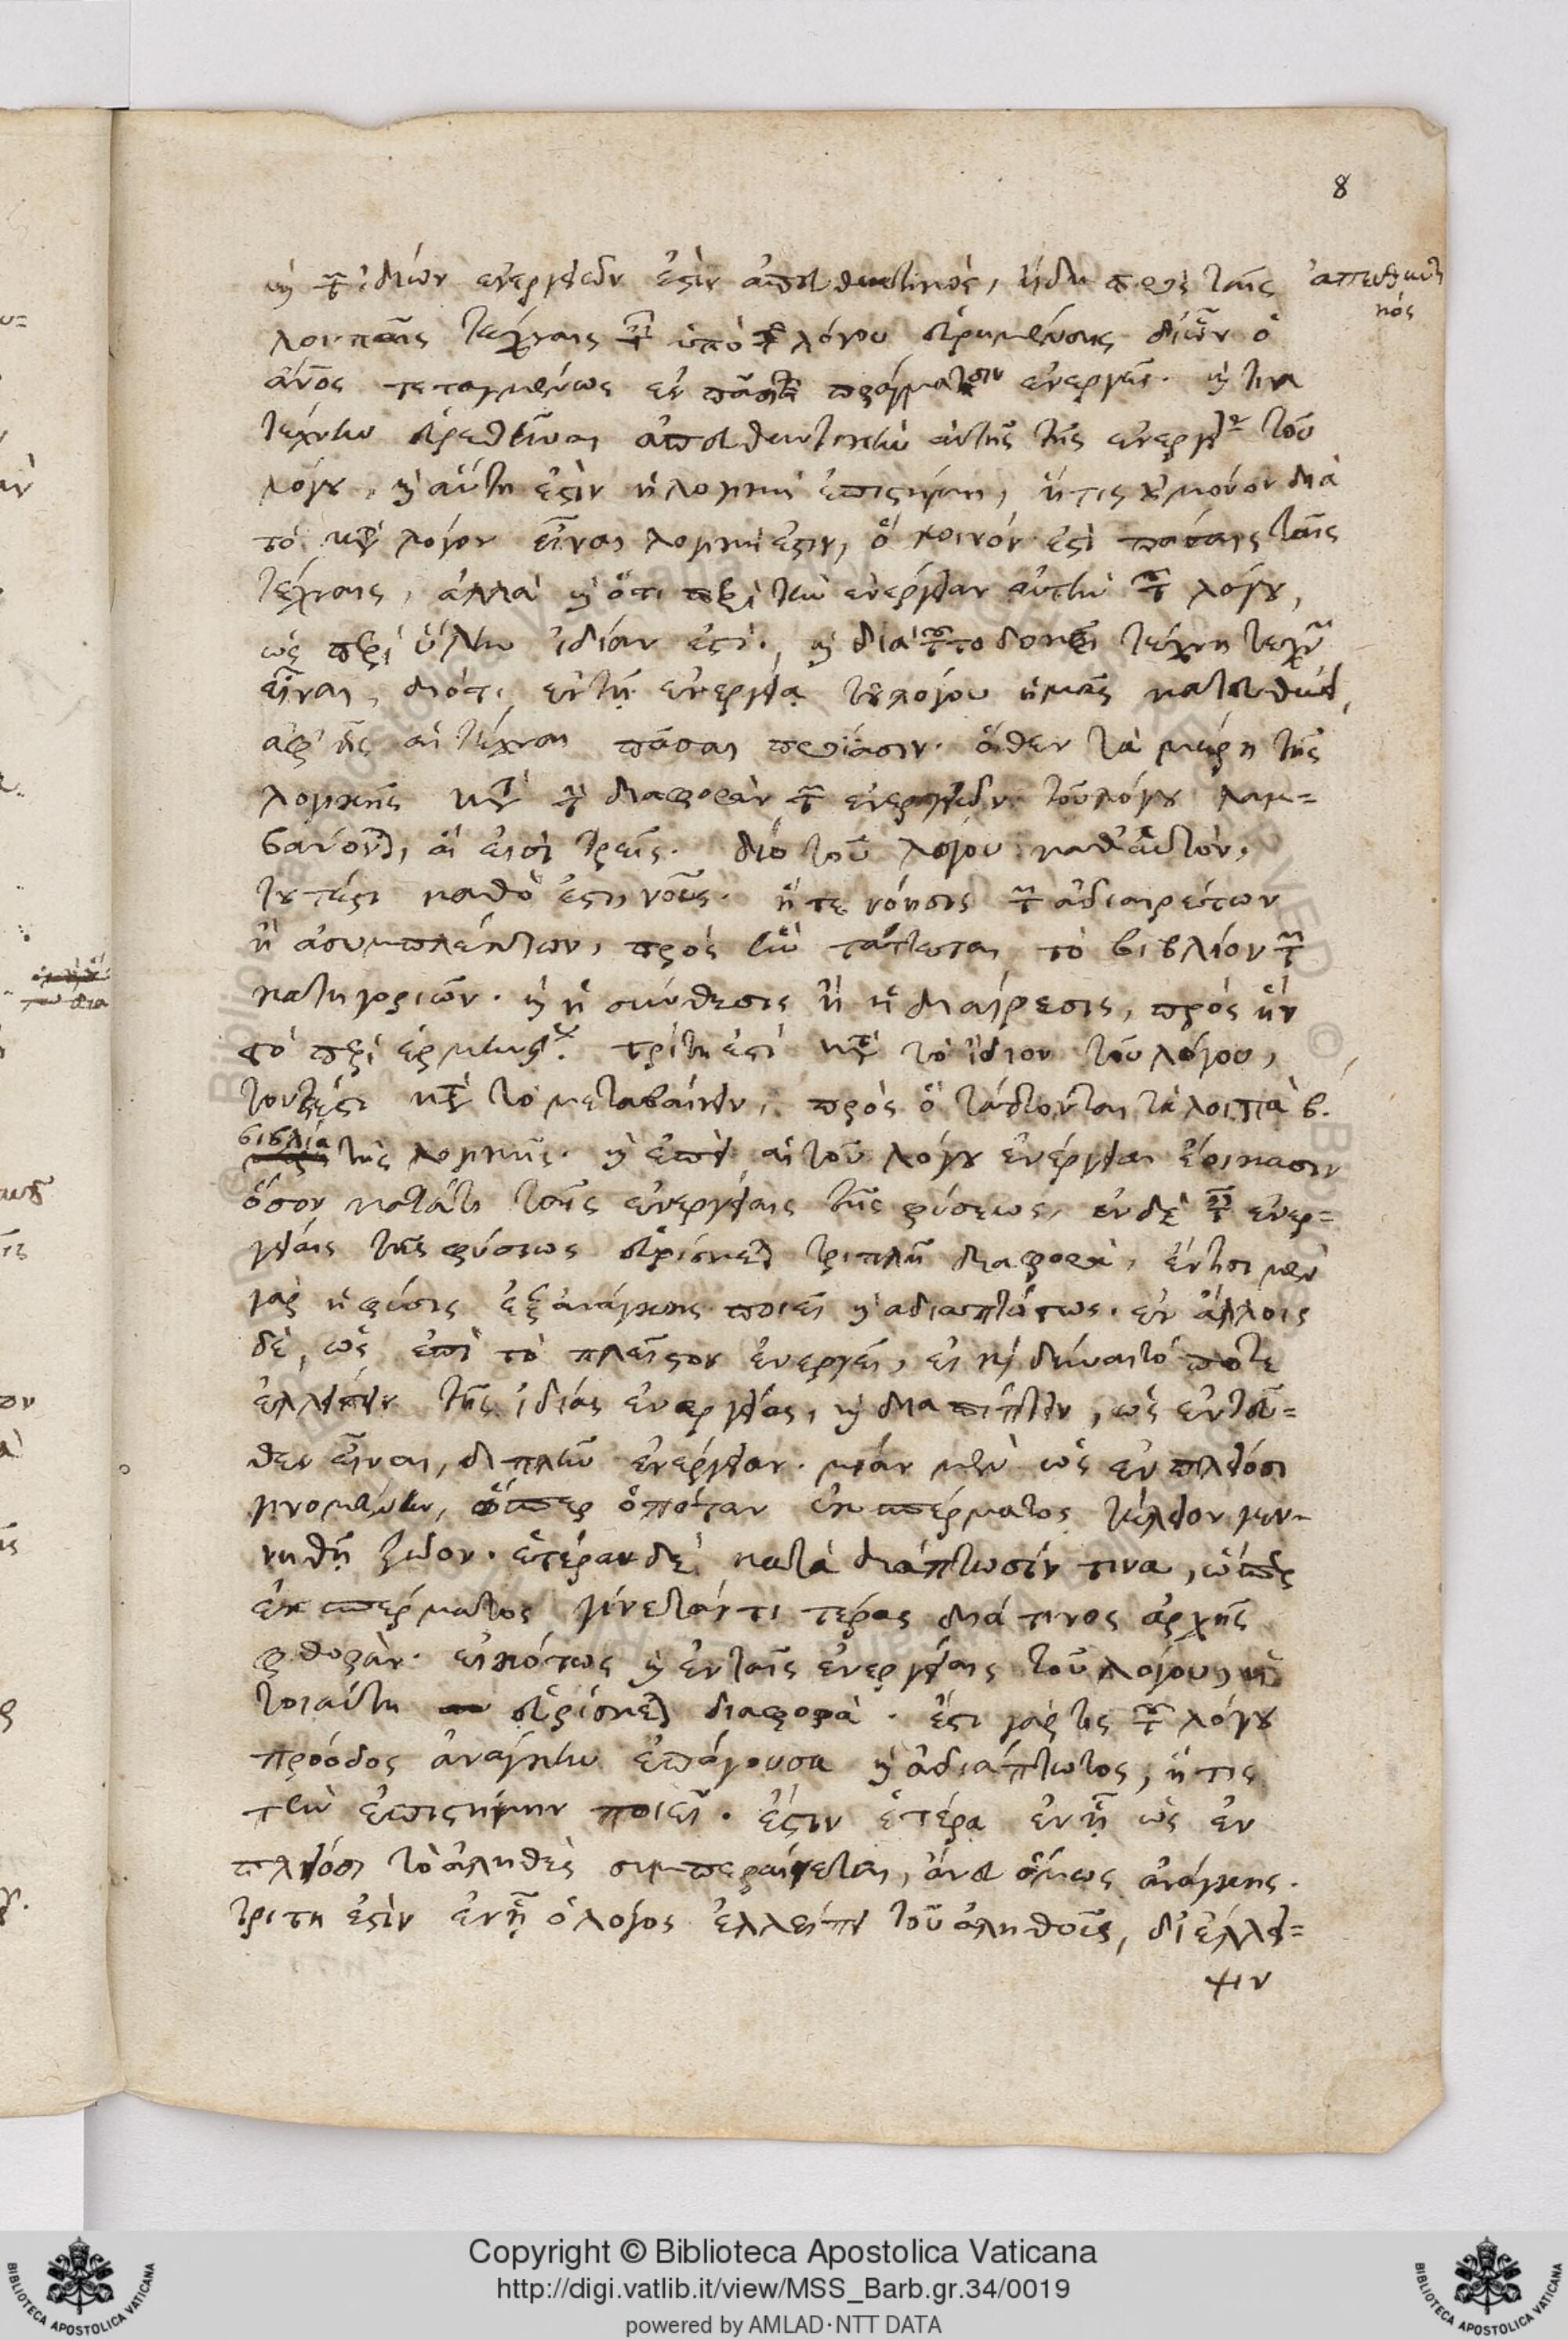 8
καὶ τῶν ἰδίων ἐνεργειῶν ἐστὶν ἀπευθυντικὸς, ἤδη πρὸς ταῖς
ἀπευθυντι
κός
λοιπαῖς τέχναις ταῖς ὑπὸ τοῦ λόγου εὑρημέναις δι' ὧν ὁ
ἄνος τεταγμένως ἐν πᾶσι πράγμασιν ἐνεργεῖ. καὶ τινα
τέχνην εὑρεθῆναι ἀπευθυντικὴν αὐτῆς τῆς ἐνεργείας τοῦ
λόγου, καὶ αὕτη ἐστὶν ἡ λογικὴ ἐπιστήμη, ἥτις οὐ μόνον διὰ
τὸ κατὰ λόγον εἶναι λογική ἐστιν, ὃ κοινόν ἐστι πάσαις ταῖς
τέχναις, ἀλλὰ καὶ ὅτι περὶ τὴν ἐνέργειαν αὐτὴν τοῦ λόγου,
ὡς περὶ ὕλην ἰδίαν ἐστί. καὶ διὰ τοῦτο δοκεῖ τέχνη τεχνῶν
εἶναι, διότι ἐν τῇ ἐνεργείᾳ τοῦ λόγου ἡμᾶς κατευθύνει,
ἀφ' ἧς αἱ τέχναι πᾶσαι προίασιν. ὅθεν τὰ μέρη τῆς
λογικῆς κατὰ τὴν διαφορὰν τῶν ἐνεργειῶν τοῦ λόγου λαμ=
βάνονται, αἵ εἰσὶ τρεῖς. δύο τοῦ λόγου καθ' ἑαυτὸν,
τουτέστι καθὸ ἐστὶ νοῦς. ἥ τε νόησις τῶν ἀδιαιρέτων
ἢ ἀσυμπλέκτων, πρὸς ἣν τάττεται τὸ βιβλίον τῶν
κατηγοριῶν. καὶ ἡ σύνθεσις ἢ ἡ διαίρεσις, πρὸς ἣν
τὸ περὶ ἑρμηνείας. τρίτη ἐστὶ κατὰ τὸ ἴδιον τοῦ λόγου,
τουτέστι κατὰ τὸ μεταβαίνειν, πρὸς ὃ τάττονται τὰ λοιπὰ β.
βιβλία τῆς λογικῆς. καὶ ἐπεὶ αἱ τοῦ λόγου ἐνέργειαι ἐοίκασιν
ὅσον κατά τι ταῖς ἐνεργείαις τῆς φύσεως, ἐν δὲ ταῖς ἐνερ=
γείαις τῆς φύσεως εὑρίσκεται τριπλῆ διαφορὰ, ἔν τισι μὲν
γὰρ ἡ φύσις ἐξ ἀνάγκης ποιεῖ καὶ ἀδιαπτώτως. ἐν ἄλλοις
δὲ, ὡς ἐπὶ τὸ πλεῖστον ἐνεργεῖ, εἰ καὶ δύναιτό ποτε
ἐλλείπειν τῆς ἰδίας ἐνεργείας, καὶ διαπίπτειν, ὡς ἐντεῦ=
θεν εἶναι, διπλῆν ἐνέργειαν. μίαν μὲν ὡς ἐν πλείοσι
γινομένην, ὥσπερ ὁπόταν ἐκ σπέρματος τέλειον γεν-
νηθῇ ζῶον. ἑτέραν δὲ κατὰ διάπτωσίν τινα, ὥσπερ
ἐκ σπέρματος γίνεταί τι τέρας διά τινος ἀρχῆς
φθοράν. εἰκότως καὶ ἐν ταῖς ἐνεργείαις τοῦ λόγου, ἡ
τοιαύτη εὑρίσκεται διαφορά. ἔστι γάρ τις τοῦ λόγου
πρόοδος ἀνάγκην ἐπάγουσα καὶ ἀδιάπτωτος, ἥτις
τὴν ἐπιστήμην ποιεῖ. ἔστιν ἑτέρα ἐν ᾗ ὡς ἐν
πλείοσι τὸ ἀληθὲς συμπεραίνεται, ἄνευ ὅμως ἀνάγκης.
τρίτη ἐστὶν ἐν ᾗ ὁ λόγος ἐλλείπει τοῦ ἀληθοῦς, δι' ἔλλει=
ψιν
Copyright © Biblioteca Apostolica Vaticana
http://digi.vatlib.it/view/MSS_Barb.gr.34/0019
powered by AMLAD·NTT DATA